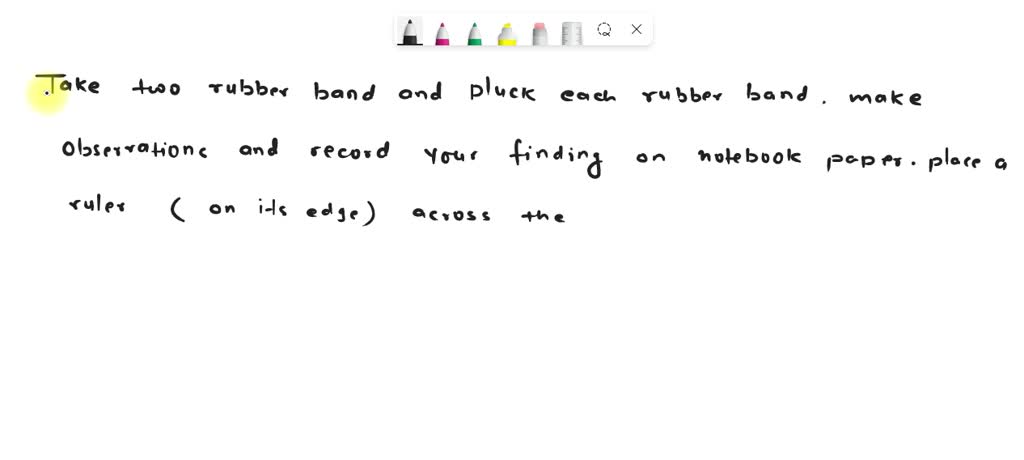 Take two rubber band and pluck each rubber band. make
observations and record your finding on notebook paper. place a
ruler (on its edge) across the